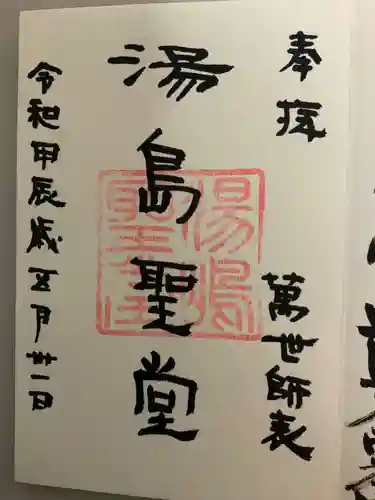 奉拝
萬世師表
湯島聖堂
湯島聖堂
令和甲辰歳五月卅一日